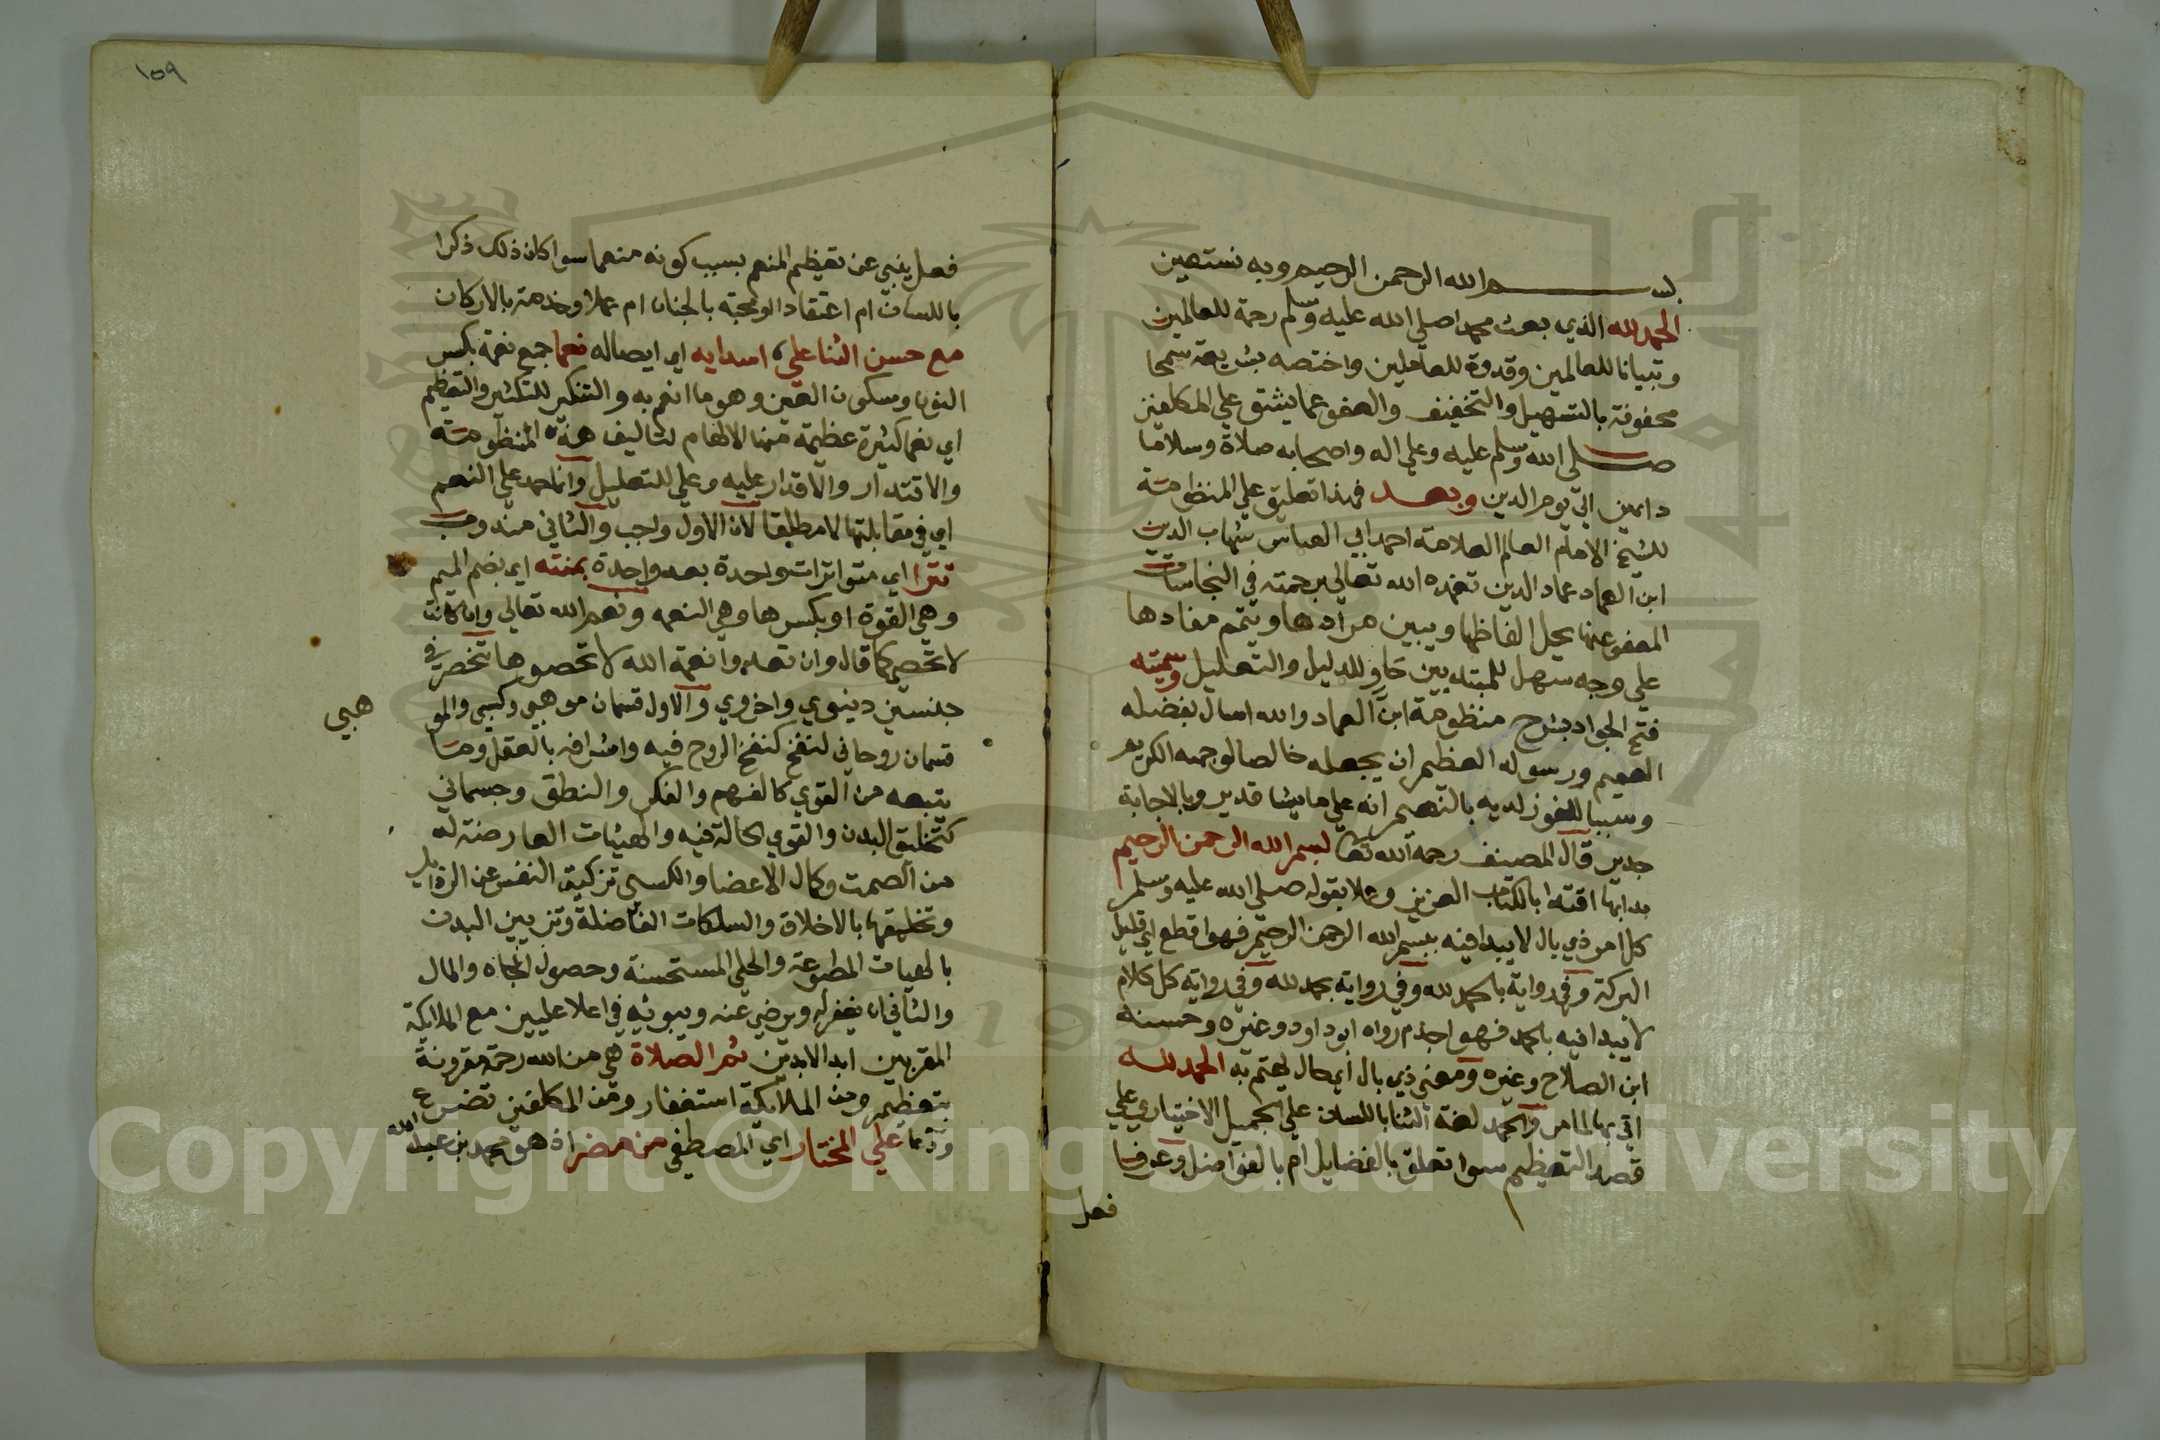 بسم الله الرحمن الرحيم وبه نستعين
الحمد لله الذي بعث محمدا صلي الله عليه وسلم رحمة للعالمين
وتبيانا للعالمين وقدوة للعاملين واختصه بشريعة سمحا
محفوفة بالتسهيل والتخفيف والعفو عما يشق علي المكلفين
صلي الله وسلم عليه وعلي اله واصحابه صلاة وسلاما
دايمين الي يوم الدين وبعد فهذا تعليق علي المنظومة
للشيخ الامام العالم العلامة احمد ابي العباس شهاب الدين
ابن العماد عماد الدين تغمده الله تعالي برحمته في النجاسات
المعفو عنها يحل الفاظها ويبين مرادها ويتمم مفادها
علي وجه سهل للمبتديين حاو للدليل والتعليل وسميته
فتح الجواد بشرح منظومة ابن العماد والله اسال بفضله
العميم ورسوله العظيم ان يجعله خالصا لوجهه الكريم
وسببا للفوز لديه بالنعيم انه علي ما يشا قدير وبالاجابة
جدير قال المصنف رحمه الله تعا بسم الله الرحمن الرحيم
بدا بها اقتدا بالكتاب العزيز وعملا بقوله صلي الله عليه وسلم
كل امر ذي بال لا يبدا فيه ببسم الله الرحمن الرحيم فهو اقطع اي قليل
البركة وفي رواية بالحمد لله وفي رواية بحمد لله وفي رواية كل كلام
لا يبدا فيه بالحمد فهو اجذم رواه ابو داود وغيره وحسنه
ابن الصلاح وغيره ومعني ذي بال اي حال يهتم به الحمد لله
اتي بها لما مر والحمد لغة الثنا باللسان علي الجميل الاختياري علي
قصد التعظيم سوا تعلق بالفضايل ام بالفواضل وعرفا
فعل
١٥٩
فعل ينبي عن تعظيم المنعم بسبب كونه منعما سوا كان ذلك ذكرا
باللسان ام اعتقادا ومحبة بالجنان ام عملا وخدمة بالاركان
مع حسن الثنا علي اسدايه اي ايصاله نعما جمع نعمة بكسر
النون وسكون العين وهو ما انعم به والتنكير للتكثير والتعظيم
اي نعما كثيرة عظيمة منها الالهام لتاليف هذه المنظومة
والاقتدار والاقدار عليه وعلي للتعليل وانما حمد علي النعم
اي في مقابلتها لا مطلقا لان الاول واجب والثاني مندوب
تترا اي متواترات واحدة بعد واحدة بمنته اي بضم الميم
وهي القوة او بكسرها وهي النعمه ونعم الله تعالي وان كانت
لا تحصي كما قال وان تعدوا نعمة الله لا تحصوها تنحصر في
جنسين دنيوي واخروي والاول قسمان موهبي وكسبي والمو
هبي
قسمان روحاني كنفخ الروح فيه واشرافه بالعقل وما
يتبعه من القوي كالفهم والفكر والنطق وجسماني
كتخليق البدن والقوي الحالة فيه والهيئات العارضة له
من الصحت وكمال الاعضا والكسبي تزكية النفس عن الرذايل
وتخليقها بالاخلاق والملكات الفاضلة وتزيين البدن
بالهيات المطبوعة والحلي المستحسنة وحصول الجاه والمال
والثاني ان يغفر له ويرضي عنه ويبوئه في اعلا عليين مع الملايكة
المقربين ابد الابدين ثم الصلاة هي من الله رحمة مقرونة
بتعظيم ومن الملايكة استغفار ومن المكلفين تضرع
ودعا علي المختار اي المصطفي من مضر اذ هو محمد بن عبد الله
Copyright © King Saud University